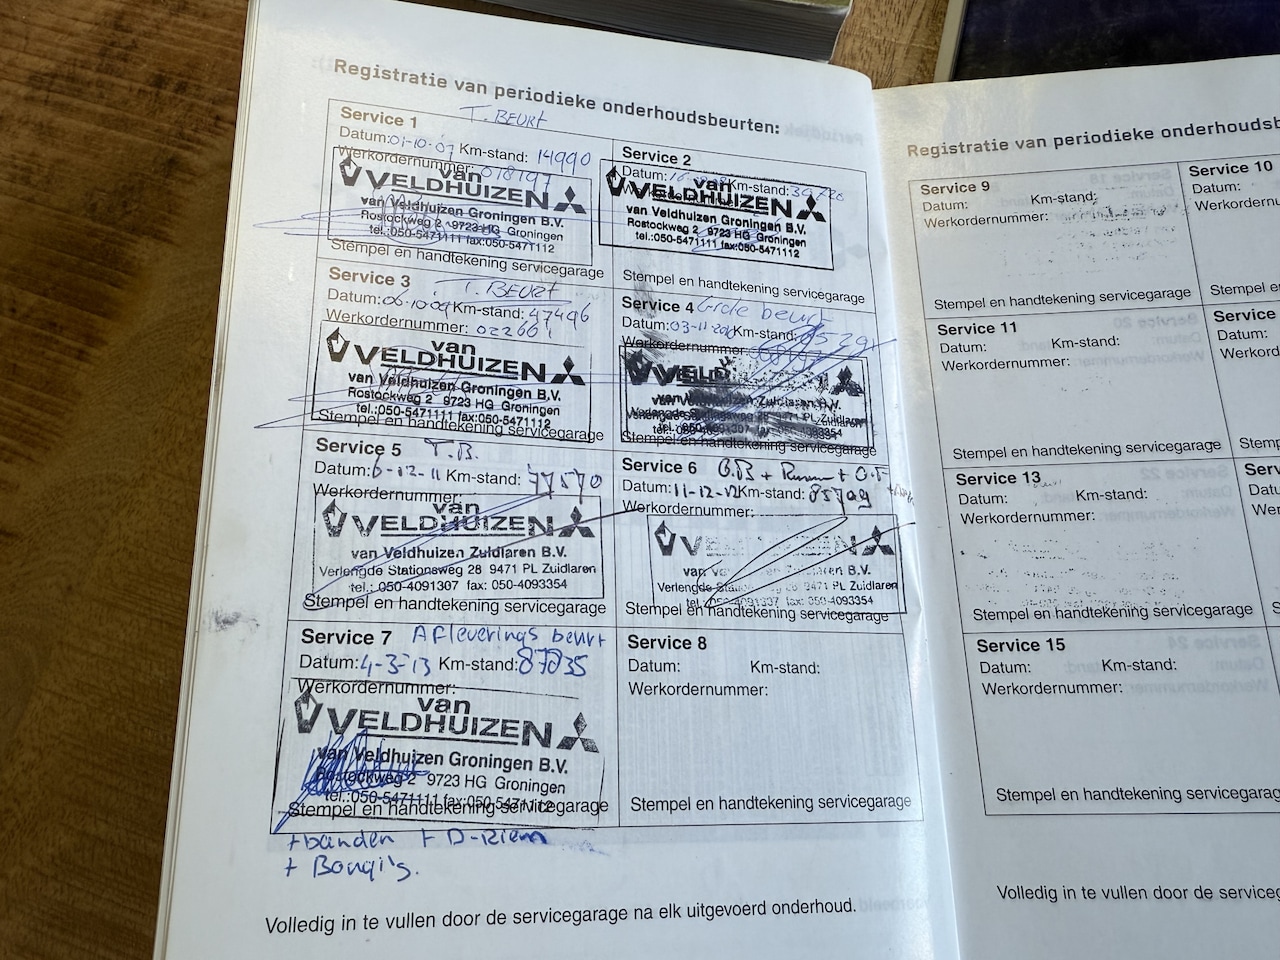 Registratie van periodieke onderhoudsbeurten:
Service 1 T. BEURT
Datum: 01-10-07 Km-stand: 14990
Werkordernummer: 018197
van
VELDHUIZEN
van Veldhuizen Groningen B.V.
Rostockweg 2 9723 HG Groningen
tel.:050-5471111 fax:050-5471112
Stempel en handtekening servicegarage
Service 2
Datum: Km-stand:
van
VELDHUIZEN
van Veldhuizen Groningen B.V.
Rostockweg 2 9723 HG Groningen
tel.:050-5471111 fax:050-5471112
Stempel en handtekening servicegarage
Service 3 T. BEURT
Datum: 06-10-09 Km-stand: 47496
Werkordernummer:
van
VELDHUIZEN
van Veldhuizen Groningen B.V.
Rostockweg 2 9723 HG Groningen
tel.:050-5471111 fax:050-5471112
Stempel en handtekening servicegarage
Service 4 Grote beurt
Datum: 03-11- Km-stand:
Werkordernummer:
van Veldhuizen Zuidlaren B.V.
9471 PL Zuidlaren
Stempel en handtekening servicegarage
Service 5 T.B.
Datum: 6-12-11 Km-stand: 77570
Werkordernummer:
van
VELDHUIZEN
van Veldhuizen Zuidlaren B.V.
Verlengde Stationsweg 28 9471 PL Zuidlaren
tel.: 050-4091307 fax: 050-4093354
Stempel en handtekening servicegarage
Service 6
Datum: 11-12-12 Km-stand: 85709
Werkordernummer:
B.V.
Verlengde 9471 PL Zuidlaren
tel. 050-4091307 fax: 050-4093354
Stempel en handtekening servicegarage
Service 7 Afleverings beurt
Datum: 4-3-13 Km-stand: 87835
Werkordernummer:
van
VELDHUIZEN
van Veldhuizen Groningen B.V.
Rostockweg 2 9723 HG Groningen
tel.:050-5471111 fax:050-5471112
Stempel en handtekening servicegarage
+ banden + D-Riem
+ Bougi's.
Service 8
Datum: Km-stand:
Werkordernummer:
Stempel en handtekening servicegarage
Volledig in te vullen door de servicegarage na elk uitgevoerd onderhoud.
Registratie van periodieke onderhoudsb
Service 9
Datum: Km-stand:
Werkordernummer:
Stempel en handtekening servicegarage
Service 10
Datum:
Werkord
Stempel e
Service 11
Datum: Km-stand:
Werkordernummer:
Stempel en handtekening servicegarage
Service
Datum:
Werkord
Stemp
Service 13
Datum: Km-stand:
Werkordernummer:
Stempel en handtekening servicegarage
Service 15
Datum: Km-stand:
Werkordernummer:
Stempel en handtekening servicegarage
Volledig in te vullen door de serviceg